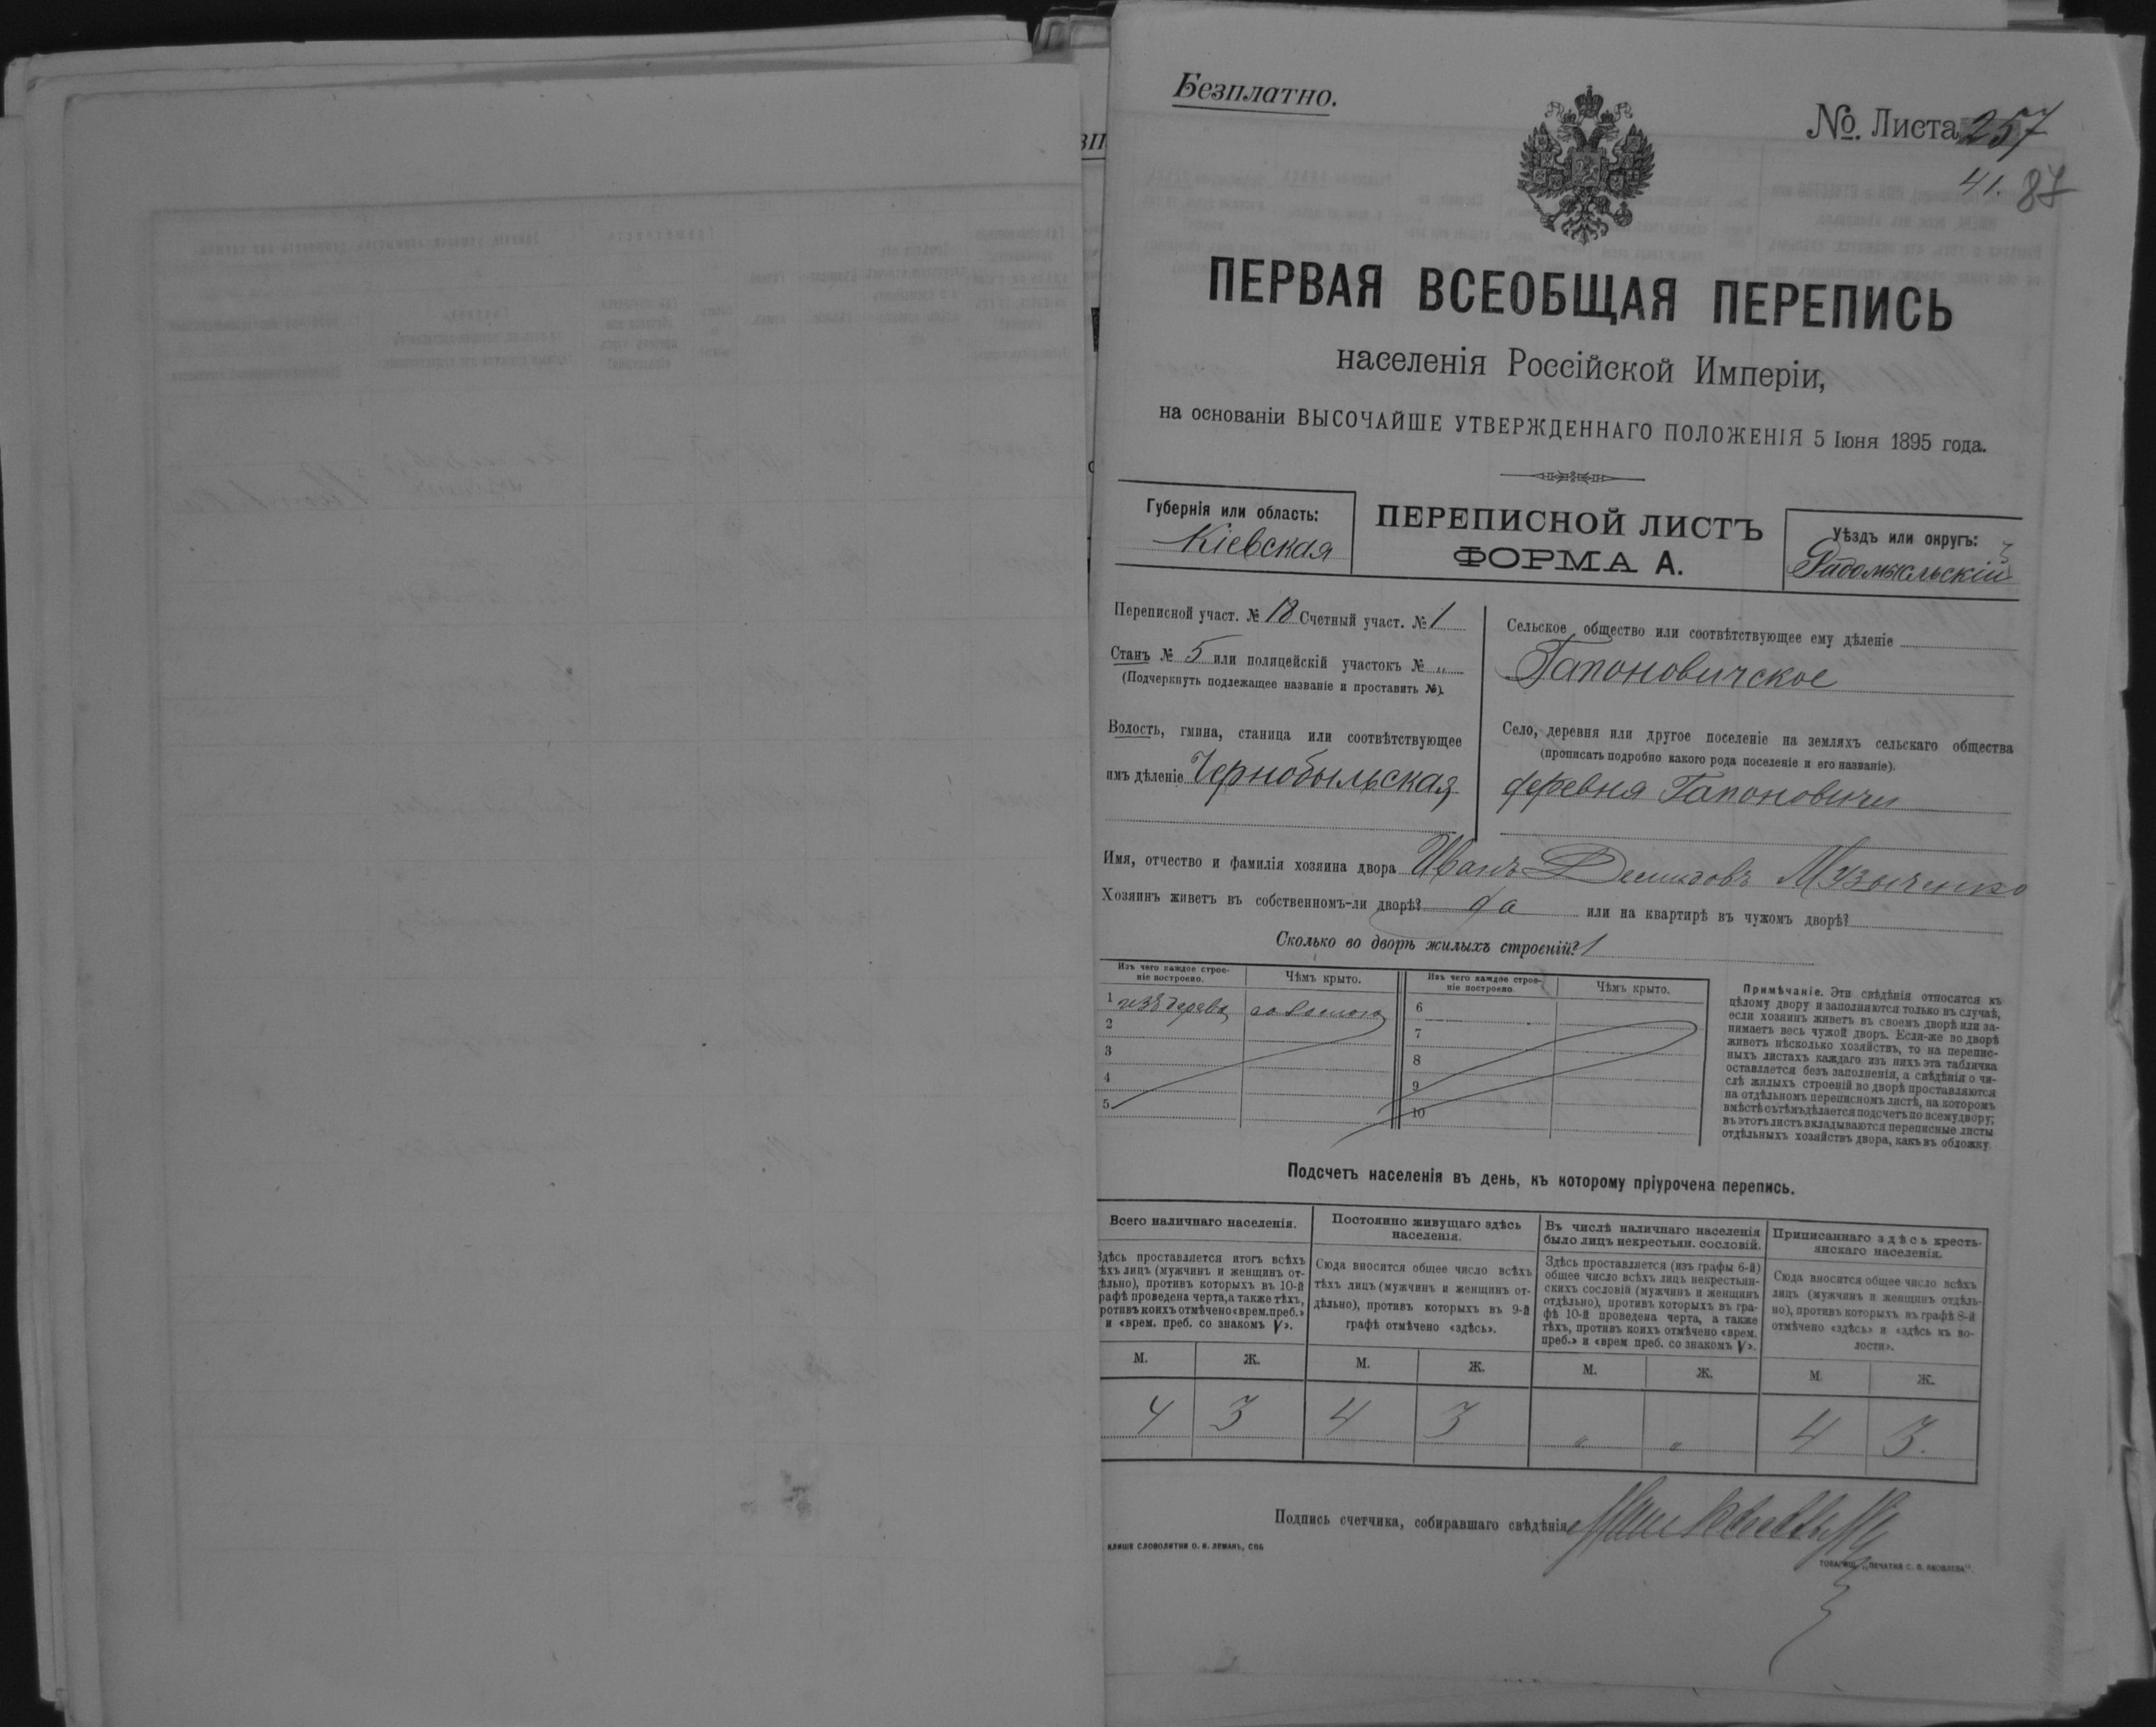 Безплатно.
№. Листа 257
41. 87
ПЕРВАЯ ВСЕОБЩАЯ ПЕРЕПИСЬ
населенія Россійской Имперіи,
на основаніи ВЫСОЧАЙШЕ УТВЕРЖДЕННАГО ПОЛОЖЕНІЯ 5 Іюня 1895 года.
Губернія или область:
Кіевская
ПЕРЕПИСНОЙ ЛИСТЪ
ФОРМА А.
Уѣздъ или округъ:
Радомысльскій
Переписной участ. № 18 Счетный участ. № 1
Станъ № 5 или полицейскій участокъ № „
(Подчеркнуть подлежащее названіе и проставить №).
Волость, гмина, станица или соотвѣтствующее
имъ дѣленіе Чернобыльская
Сельское общество или соотвѣтствующее ему дѣленіе
Гапоновичское
Село, деревня или другое поселеніе на земляхъ сельскаго общества
(прописать подробно какого рода поселеніе и его названіе).
деревня Гапоновичи
Имя, отчество и фамилія хозяина двора Иванъ Демидовъ Музыченко
Хозяинъ живетъ въ собственномъ-ли дворѣ? да или на квартирѣ въ чужомъ дворѣ?
Сколько во дворѣ жилыхъ строеній? 1
Изъ чего каждое строе-
ніе построено.
Чѣмъ крыто.
1 изъ дерева соломою
2
3
4
5
Изъ чего каждое строе-
ніе построено.
Чѣмъ крыто.
6
7
8
9
10
Примѣчаніе. Эти свѣдѣнія относятся къ
цѣлому двору и заполняются только въ случаѣ,
если хозяинъ живетъ въ своемъ дворѣ или за-
нимаетъ весь чужой дворъ. Если-же во дворѣ
живетъ нѣсколько хозяйствъ, то на перепис-
ныхъ листахъ каждаго изъ нихъ эта табличка
оставляется безъ заполненія, а свѣдѣнія о чи-
слѣ жилыхъ строеній во дворѣ проставляются
на отдѣльномъ переписномъ листѣ, на которомъ
вмѣстѣ съ тѣмъ дѣлается подсчетъ по всему двору;
въ этотъ листъ вкладываются переписные листы
отдѣльныхъ хозяйствъ двора, какъ въ обложку.
Подсчетъ населенія въ день, къ которому пріурочена перепись.
Всего наличнаго населенія.
Здѣсь проставляется итогъ всѣхъ
тѣхъ лицъ (мужчинъ и женщинъ от-
дѣльно), противъ которыхъ въ 10-й
графѣ проведена черта, а также тѣхъ,
противъ коихъ отмѣчено «врем. преб.»
и «врем. преб. со знакомъ V».
Постоянно живущаго здѣсь
населенія.
Сюда вносится общее число всѣхъ
тѣхъ лицъ (мужчинъ и женщинъ от-
дѣльно), противъ которыхъ въ 9-й
графѣ отмѣчено «здѣсь».
Въ числѣ наличнаго населенія
было лицъ некрестьян. сословій.
Здѣсь проставляется (изъ графы 6-й)
общее число всѣхъ лицъ некрестьян-
скихъ сословій (мужчинъ и женщинъ
отдѣльно), противъ которыхъ въ гра-
фѣ 10-й проведена черта, а также
тѣхъ, противъ коихъ отмѣчено «врем.
преб.» и «врем преб. со знакомъ V».
Приписаннаго здѣсь кресть-
янскаго населенія.
Сюда вносится общее число всѣхъ
лицъ (мужчинъ и женщинъ отдѣль-
но), противъ которыхъ въ графѣ 8-й
отмѣчено «здѣсь» и «здѣсь къ во-
лости».
М. Ж. М. Ж. М. Ж. М. Ж.
4 3 4 3 „ „ 4 3.
Подпись счетчика, собиравшаго свѣдѣнія
КЛИШЕ СЛОВОЛИТНИ О. И. ЛЕМАНЪ, СПБ
ТОВАРИЩ. „ПЕЧАТНЯ С. П. ЯКОВЛЕВА".